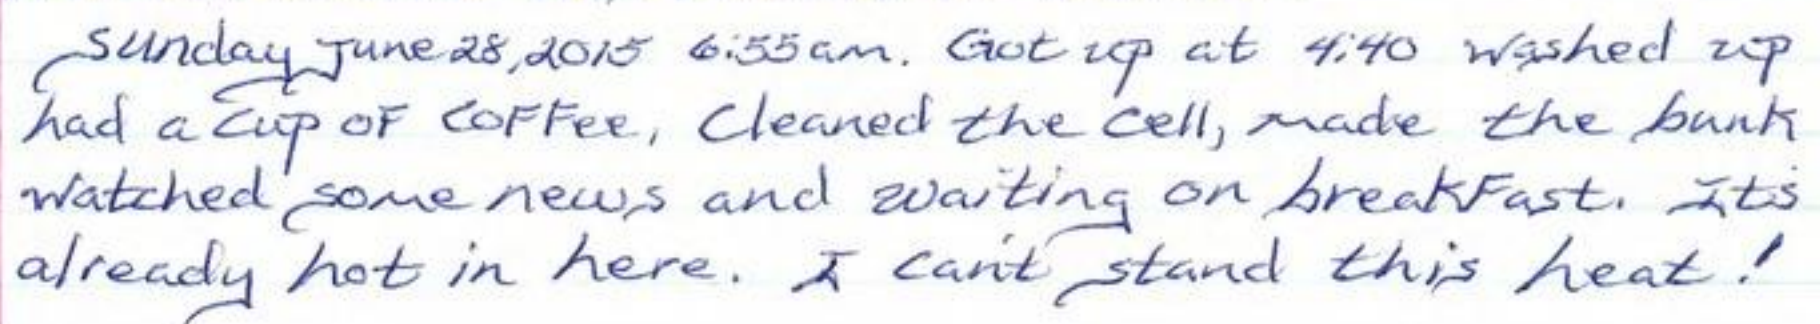 Sunday June 28, 2015 6:55am. Got up at 4:40 washed up
had a cup of coffee, cleaned the cell, made the bunk
watched some news and waiting on breakfast. It's
already hot in here. I can't stand this heat!